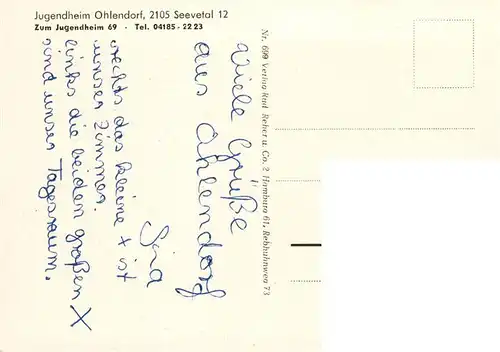 Jugendheim Ohlendorf, 2105 Seevetal 12
Zum Jugendheim 69 · Tel. 04185-2223
Viele Grüße
aus Ohlendorf
Sina
rechts das kleine x ist
unser Zimmer.
links die beiden großen X
sind unser Tagesraum.
Nr. 699 Verlag Rud. Reher u. Co. 2 Hamburg 61, Rebhuhnweg 73